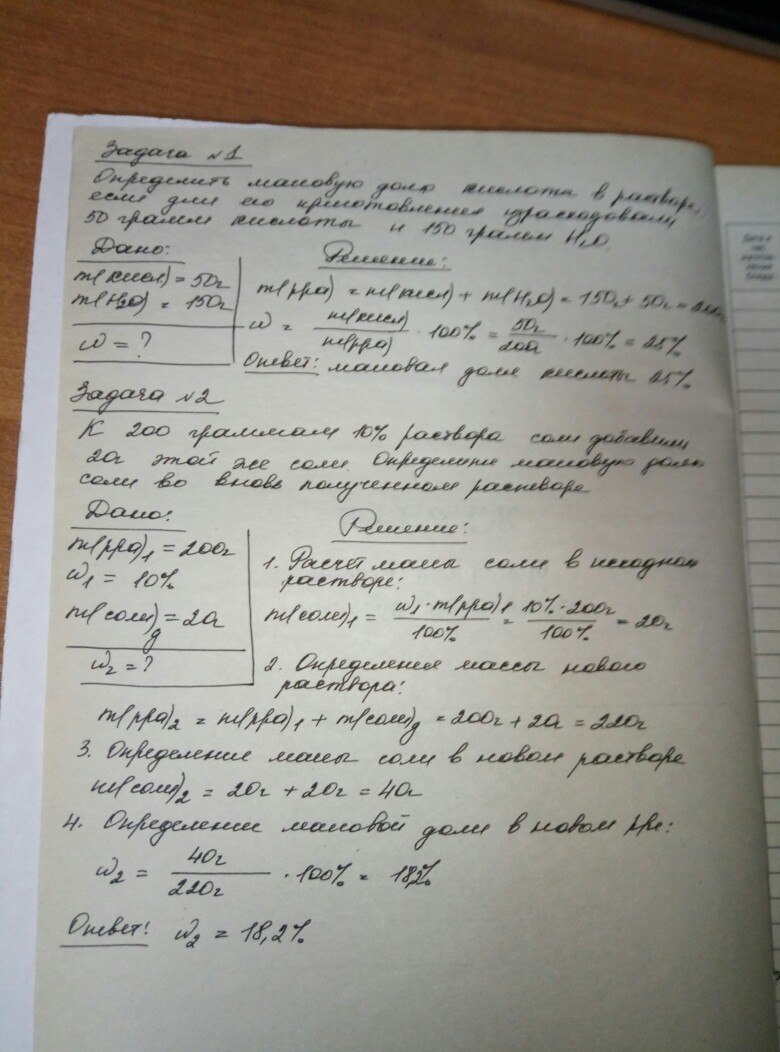 Задача №1
Определить массовую долю кислоты в растворе,
если для его приготовления израсходовали
50 грамм кислоты и 150 грамм H₂O.
Дано:
Решение:
m(кисл) = 50г
m(H₂O) = 150г
ω = ?
m(рра) = m(кисл) + m(H₂O) = 150г + 50г = 200г
ω = m(кисл)/m(рра) · 100% = 50г/200г · 100% = 25%
Ответ: массовая доля кислоты 25%
Задача №2
К 200 граммам 10% раствора соли добавили
20г этой же соли. Определить массовую долю
соли во вновь полученном растворе
Дано:
Решение:
m(рра)₁ = 200г
ω₁ = 10%
m(соли)g = 20г
ω₂ = ?
1. Расчёт массы соли в исходном
растворе:
m(соли)₁ = ω₁ · m(рра)₁/100% = 10% · 200г/100% = 20г
2. Определения массы нового
раствора:
m(рра)₂ = m(рра)₁ + m(соли)g = 200г + 20г = 220г
3. Определение массы соли в новом растворе
m(соли)₂ = 20г + 20г = 40г
4. Определение массовой доли в новом рре:
ω₂ = 40г/220г · 100% = 18,2%
Ответ: ω₂ = 18,2%